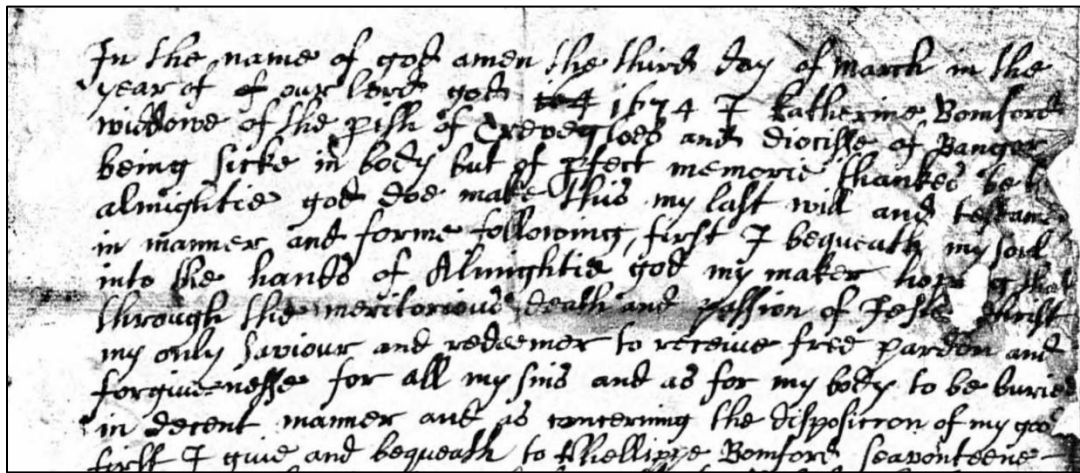 In the name of god amen the third day of march in the
year of of our lord god 1674 I Katherine Bomford
widdowe of the pish of and diocisse of Bangor
being sicke in body but of pfect memorie thankes be to
almightie god doe make this my last will and testame
in manner and forme following, first I bequeath my soul
into the hands of Almightie god my maker hoping that
through the meritorious death and passion of Jesus Christ
my only saviour and redeemer to receive free pardon and
forgivenesse for all my sins and as for my body to be buried
in decent manner and as concerning the disposition of my good
first I give and bequeath to Bomford